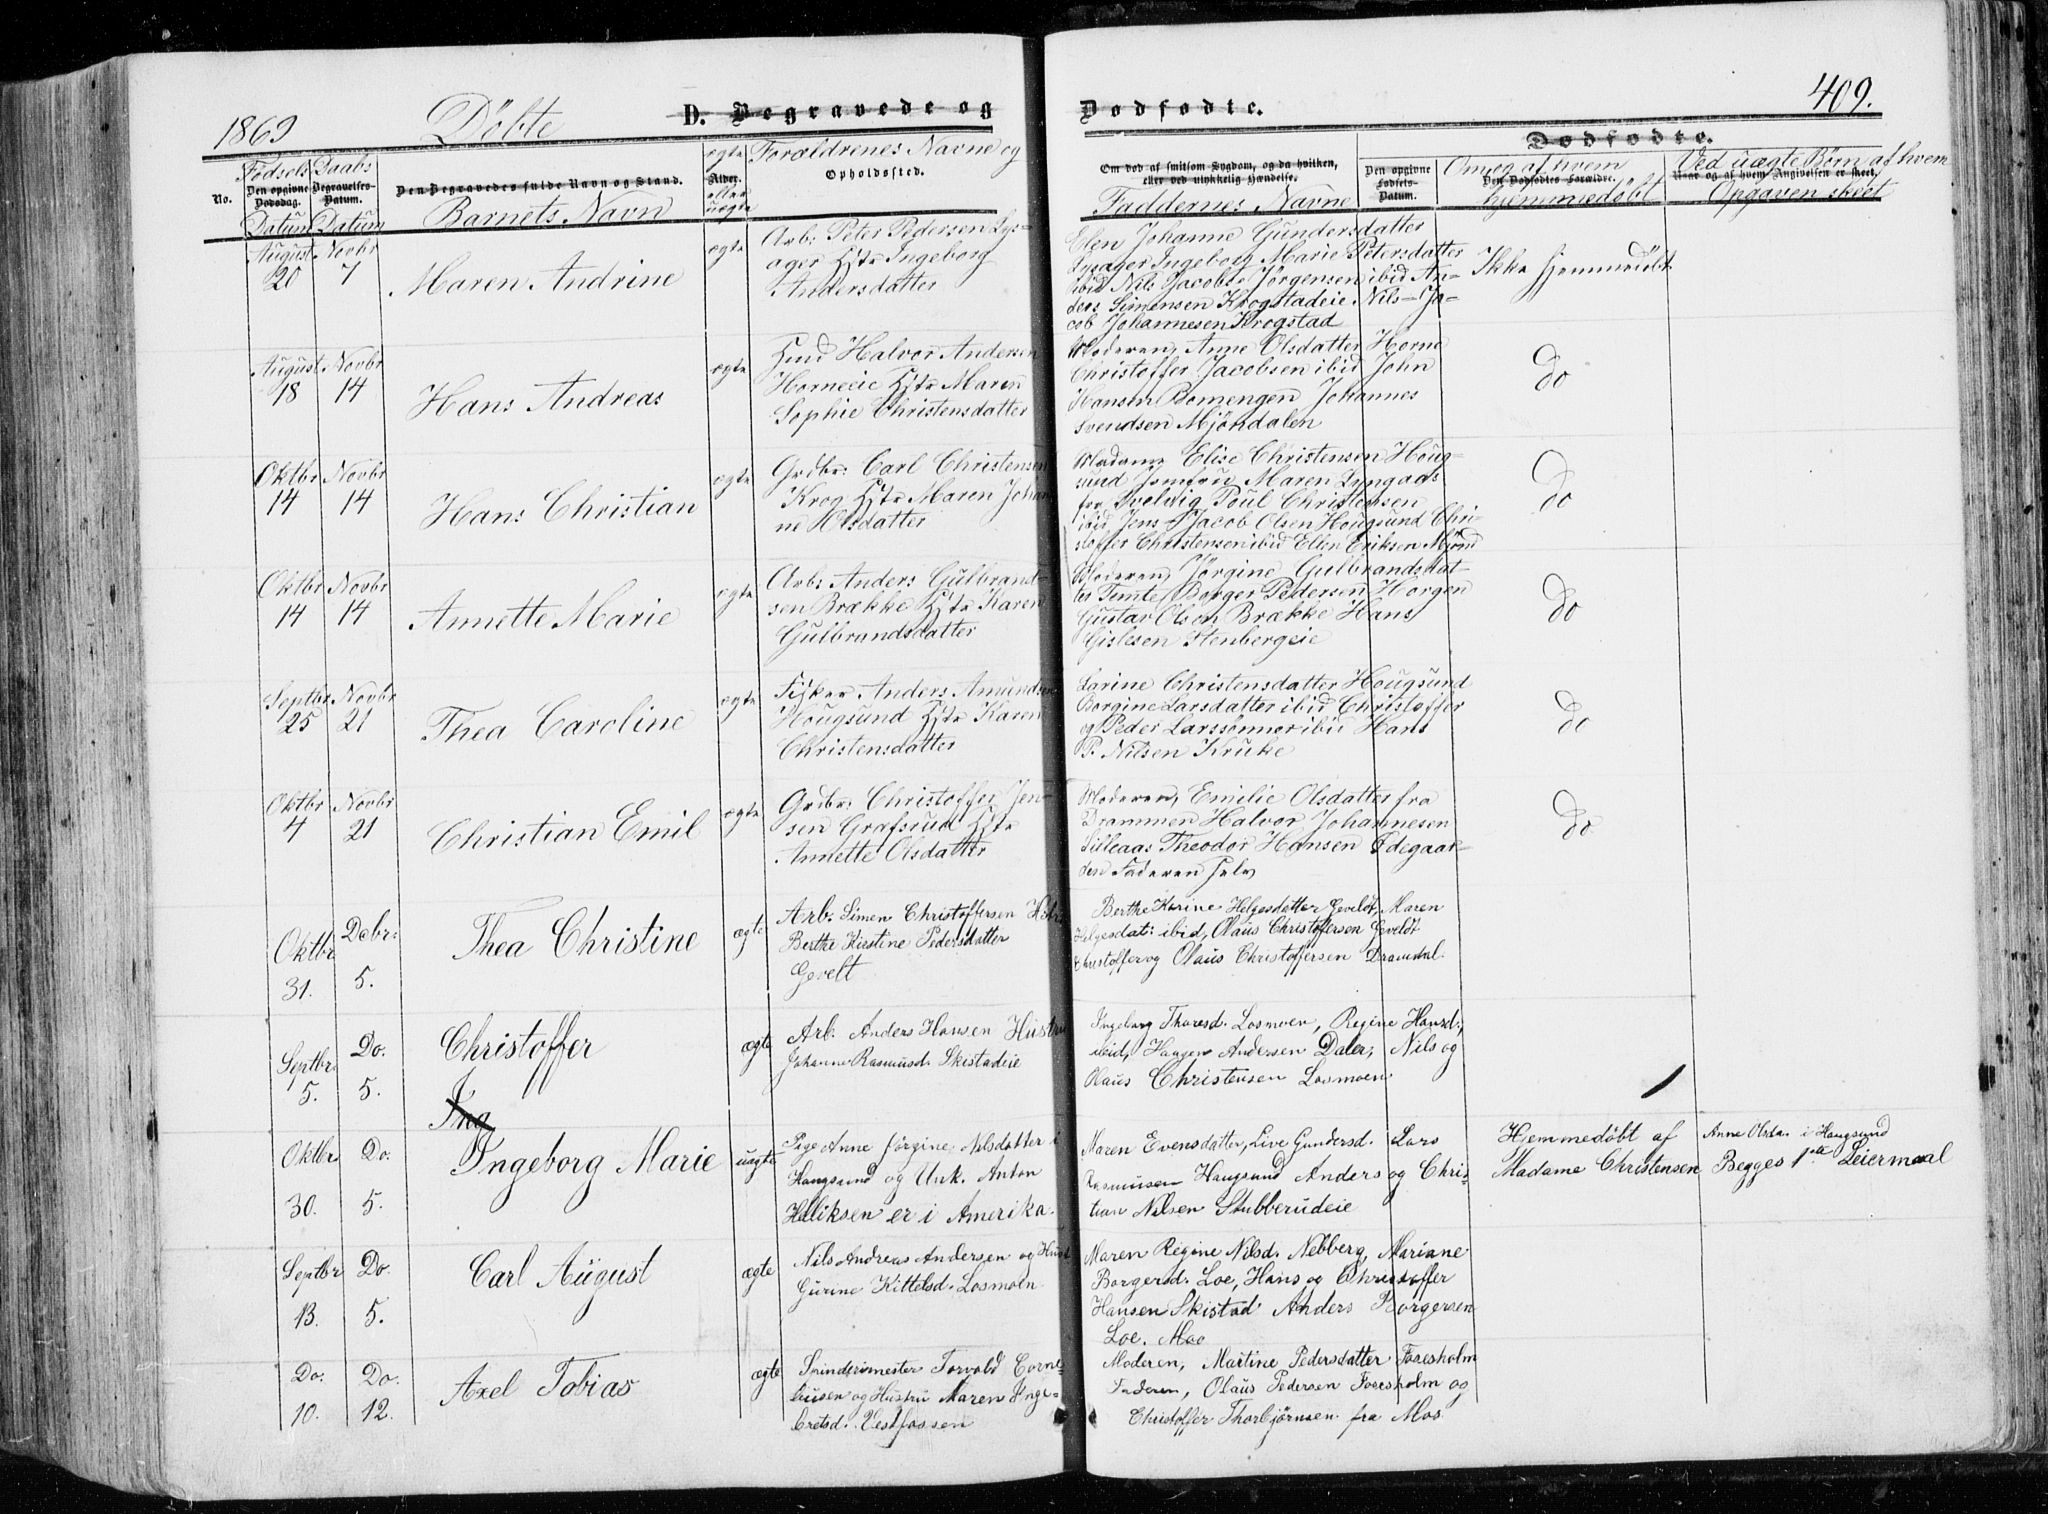 1869 Döbte D. Begravede og Dødfødte. 409.
Dødfødte.
No.
Fødsels Datum
Den opgivne Dødsdag.
Daabs Datum
Begravelses-Datum.
Den Begravedes fulde Navn og Stand.
Barnets Navn
ægte eller uægte
Alder.
Forældrenes Navne og
Opholdssted.
Om død af smitsom Sygdom, og da hvilken,
eller ved ulykkelig Hændelse.
Faddernes Navne
Den opgivne Fødsels-Datum.
Om og af hvem
Den Dødfødtes Forældre.
hjemmedöbt
Ved uægte Børn af hvem
Naar og af hvem Angivelsen er skeet.
Opgaven skeet
August 20
Novbr 7
Maren Andrine
ægte
Arb: Peter Pedersen Lys-
ager Hstr Ingeborg
Andersdatter
Elen Johanne Gundersdatter
Lysager Ingeborg Marie Petersdatter
ibid Nils Jacob Jørgensen ibid An-
ders Simensen Krogstadeie Nils Ja-
cob Johannesen Krogstad
Ikke hjemmedöbt
August 18
Novbr 14
Hans Andreas
ægte
Hmd Halvor Andersen
Horneeie Hstr Maren
Sophie Christensdatter
Moderen, Anne Olsdatter Horne
Christoffer Jacobsen ibid John
Hansen Bomengen Johannes
Svendsen Mjöndalen
Do
Oktbr 14
Novbr 14
Hans Christian
ægte
Grdbr: Carl Christensen
Krog Hstr Maren Johan
ne Olsdatter
Madam Elise Christensen Houg-
sund Jomfru Maren Lyngaas
fra Svelvig Poul Christensen
ibid Jens Jacob Olsen Hougsund Chri-
stoffer Christensen ibid Ellen Eriksen Mjönd
Do
Oktbr 14
Novbr 14
Annette Marie
ægte
Arb: Anders Gulbrand-
sen Brække Hstr Karen
Gulbrandsdatter
Moderen, Jörgine Gulbrandsdat-
ter Temte Borger Pedersen Horgen
Gustav Olsen Brække Hans
Gislesen Stenbergeie
Do
Septbr 25
Novbr 21
Thea Caroline
ægte
Fisker Anders Amundsen
Hougsund Hstr Karen
Christensdatter
Larine Christensdatter Hougsund
Borgine Larsdatter ibid Christoffer
og Peder Larssönner ibid Hans
P. Nilsen Kruke
Do
Oktbr 4
Novbr 21
Christian Emil
ægte
Grdbr: Christoffer Jen-
sen Græfsrud Hstr
Annette Olsdatter
Moderen, Emilie Olsdatter fra
Drammen Halvor Johannesen
Lilleaas Theodor Hansen Ödegaar-
den Faderen selv
Do
Oktbr 31.
Debr: 5.
Thea Christine
ægte
Arb: Simen Christoffersen Hstr
Berthe Kirstine Pedersdatter
Gevelt
Berthe Karine Helgesdatter Geveldt, Maren
Helgesdat: ibid, Olaus Christoffersen Geveldt
Christoffer og Olaus Christoffersen Dramdal.
Septbr. 5.
Do. 5.
Christoffer
ægte
Arb. Anders Hansen Hustru
Johanne Rasmusd. Skistadeie
Ingeborg Thoresd. Losmoen, Regine Hansd.,
ibid, Haagen Andersen Daler, Nils og
Olaus Christensen Losmoen.
Ing
Oktbr 30.
Do. 5.
Ingeborg Marie
uægte
Pige Anne Jörgine Nilsdatter i
Haugsund og Unk. Anton
Heliksen er i Amerika.
Maren Evensdatter, Live Gundersd. Lars
Rasmusen Haugsund Anders og Chris-
tian Nilsen Stubberudeie
Hjemmedöbt af
Madame Christensen
Anne Olsda. i Haugsund
Begges 1ste Leiermaal
Septbr 13.
Do. 5.
Carl August
ægte
Nils Andreas Andersen og Hust
Gurine Kittelsd. Losmoen
Maren Regine Nilsd. Nebberg, Mariane
Borgersd. Loe, Hans og Christoffer
Hansen Skistad Anders Borgersen
Loe. Moo
Do. 10.
Do. 12.
Axel Tobias
ægte
Spinderimester Torvald Corne-
liusen og Hustru Maren Inge-
bretsd. Vestfossen
Moderen, Martine Pedersdatter Fossesholm
Faderen, Olaus Pedersen Fossesholm og
Christoffer Thorbjörnsen fra Mos